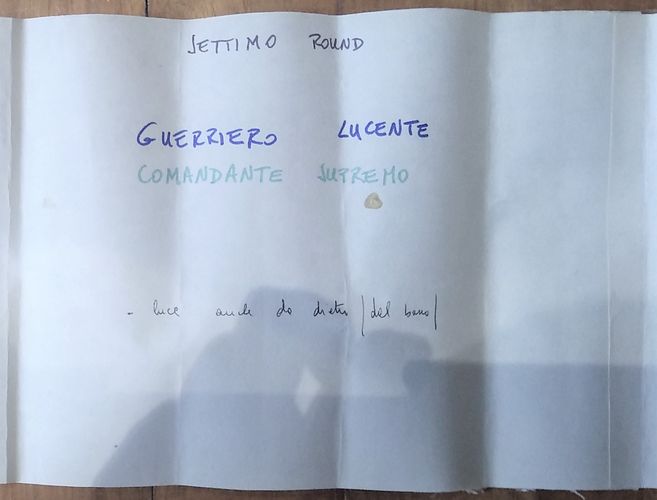 SETTIMO ROUND
GUERRIERO LUCENTE
COMANDANTE SUPREMO
- luce anche da dietro |dal basso|